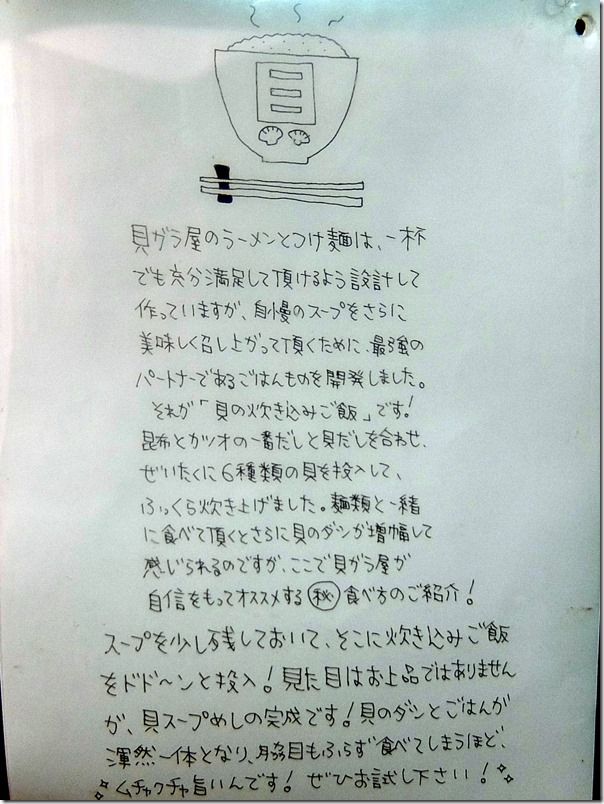 貝ガラ屋のラーメンとつけ麺は、一杯
でも充分満足して頂けるよう設計して
作っていますが、自慢のスープをさらに
美味しく召し上がって頂くために、最強の
パートナーであるごはんものを開発しました。
それが「貝の炊き込みご飯」です!
昆布とカツオの一番だしと貝だしを合わせ、
ぜいたくに6種類の貝を投入して、
ふっくら炊き上げました。麺類と一緒
に食べて頂くとさらに貝のダシが増幅して
感じられるのですが、ここで貝ガラ屋が
自信をもってオススメする㊙食べ方のご紹介!
スープを少し残しておいて、そこに炊き込みご飯
をドド〜ンと投入!見た目はお上品ではありません
が、貝スープめしの完成です!貝のダシとごはんが
渾然一体となり、脇目もふらず食べてしまうほど、
ムチャクチャ旨いんです!ぜひお試し下さい!